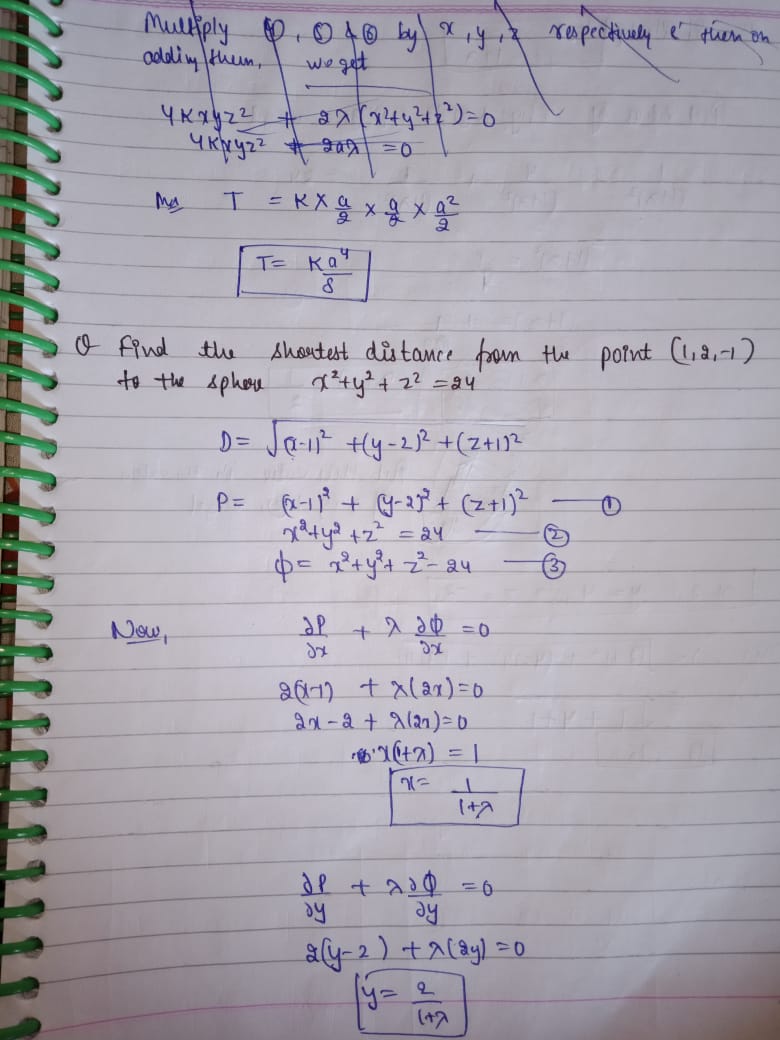 Multiply ④, ⑤ & ⑥ by x, y, z respectively & then on
adding them, we get
4Kxyz² + 2λ(x²+y²+z²)=0
4Kxyz² + 2aλ =0
T = K × a/2 × a/2 × a²/2
T= Ka⁴/8
Q Find the shortest distance from the point (1,2,-1)
to the sphere x²+y²+z² =24
D= √(x-1)² +(y-2)² +(z+1)²
P= (x-1)² + (y-2)² + (z+1)² — ①
x²+y²+z² = 24 — ②
ϕ= x²+y²+z²-24 — ③
Now, ∂P/∂x + λ ∂ϕ/∂x =0
2(x-1) + λ(2x)=0
2x-2 + λ(2x)=0
x(1+λ) = 1
x= 1/1+λ
∂P/∂y + λ ∂ϕ/∂y =0
2(y-2) + λ(2y)=0
y= 2/1+λ